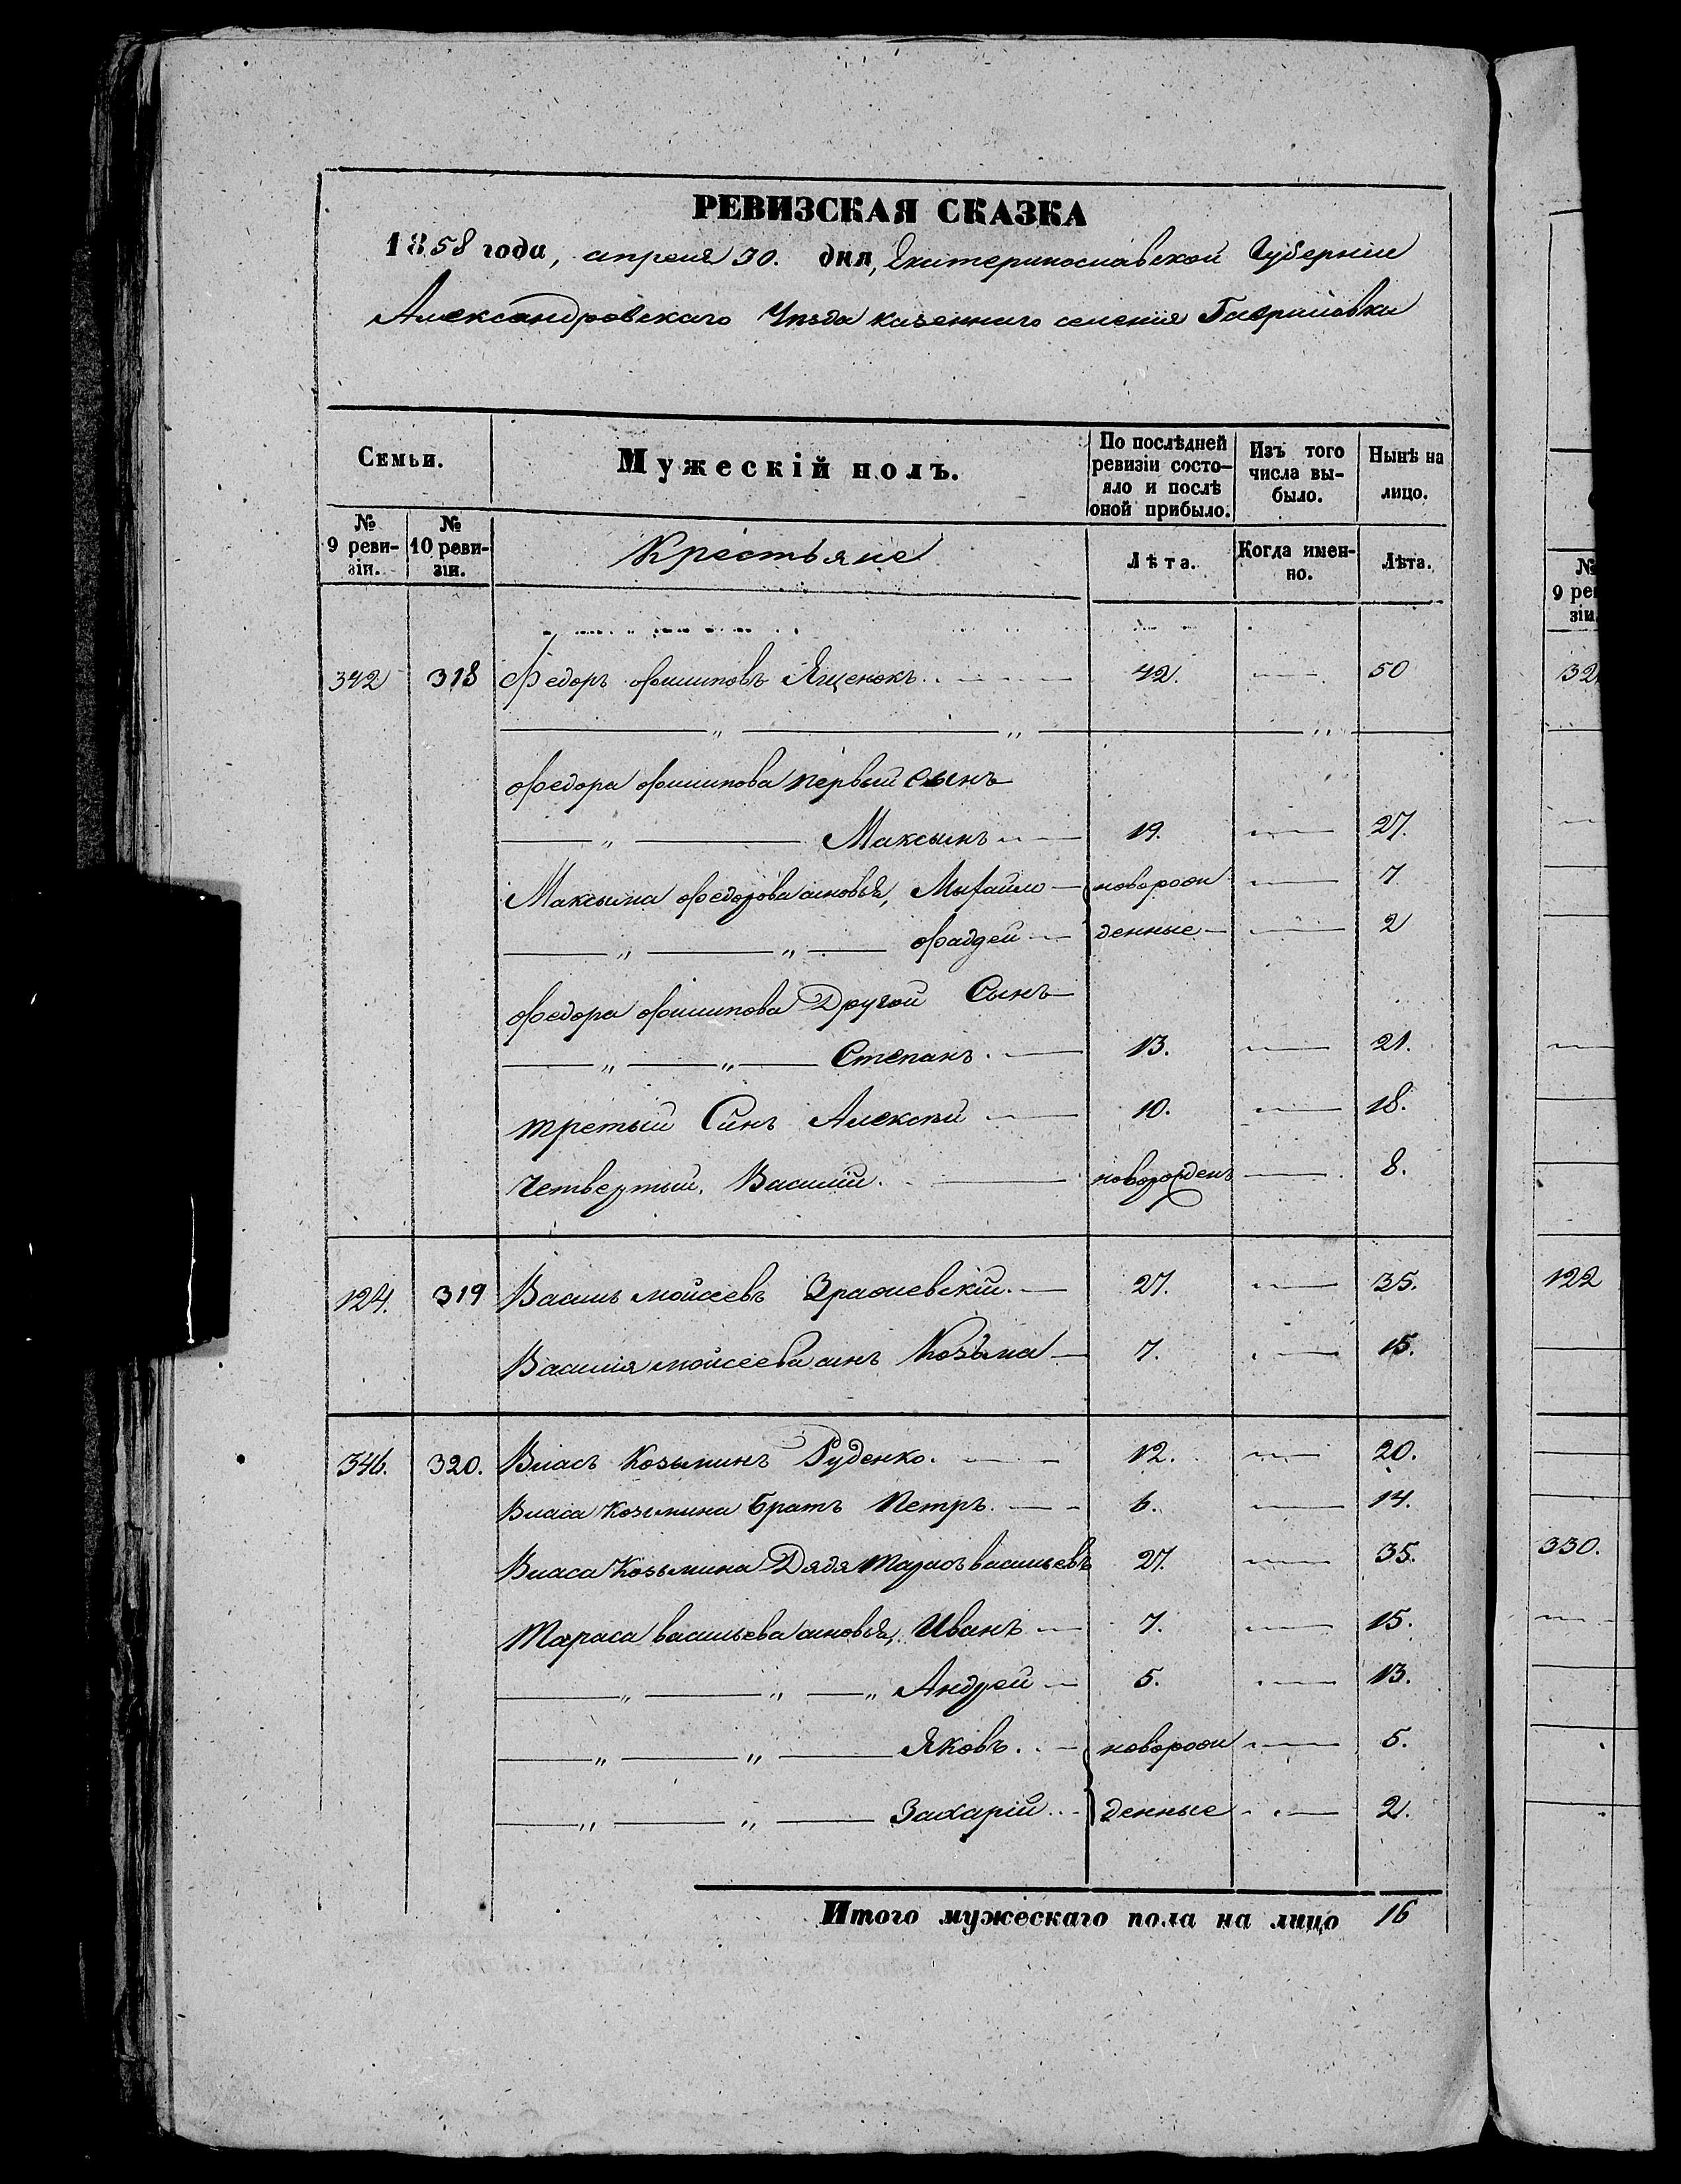 РЕВИЗСКАЯ СКАЗКА
1858 года, апреля 30. дня, Екатеринославской Губернии
Александровскаго Уѣзда казеннаго селенія Гавриловки
Семьи.
Мужескій полъ.
По послѣдней ревизіи состояло и послѣ оной прибыло.
Изъ того числа выбыло.
Нынѣ на лицо.
№ 9 ревизіи.
№ 10 ревизіи.
Крестьяне
Лѣта.
Когда именно.
Лѣта.
342 318 Федоръ Филиповъ Яценокъ 42. 50
Федора Филипова первый сынъ
Максымъ 19. 27.
Максыма Федорова сыновья, Михайло новорож 7
Фадей денные 2
Федора Филипова Другой Сынъ
Степанъ. 13. 21.
третый Сынъ Алексѣй 10. 18.
Четвертый, Василій. новорожденъ 8.
124. 319 Василь Мойсеевъ 27. 35.
Василія Мойсеева сынъ Козьма 7. 15.
346. 320. Власъ Козьминъ Руденко. 12. 20.
Власа Козьмина Братъ Петръ. 6. 14.
Власа Козьмина Дядя Тарасъ Васильевъ 27. 35.
Тараса Васильева сыновья, Иванъ 7. 15.
Андрей 5. 13.
Яковъ. новорож 5.
Захарій денные 2.
Итого мужескаго пола на лицо 16
№ 9 реви
зіи
32
122
330.